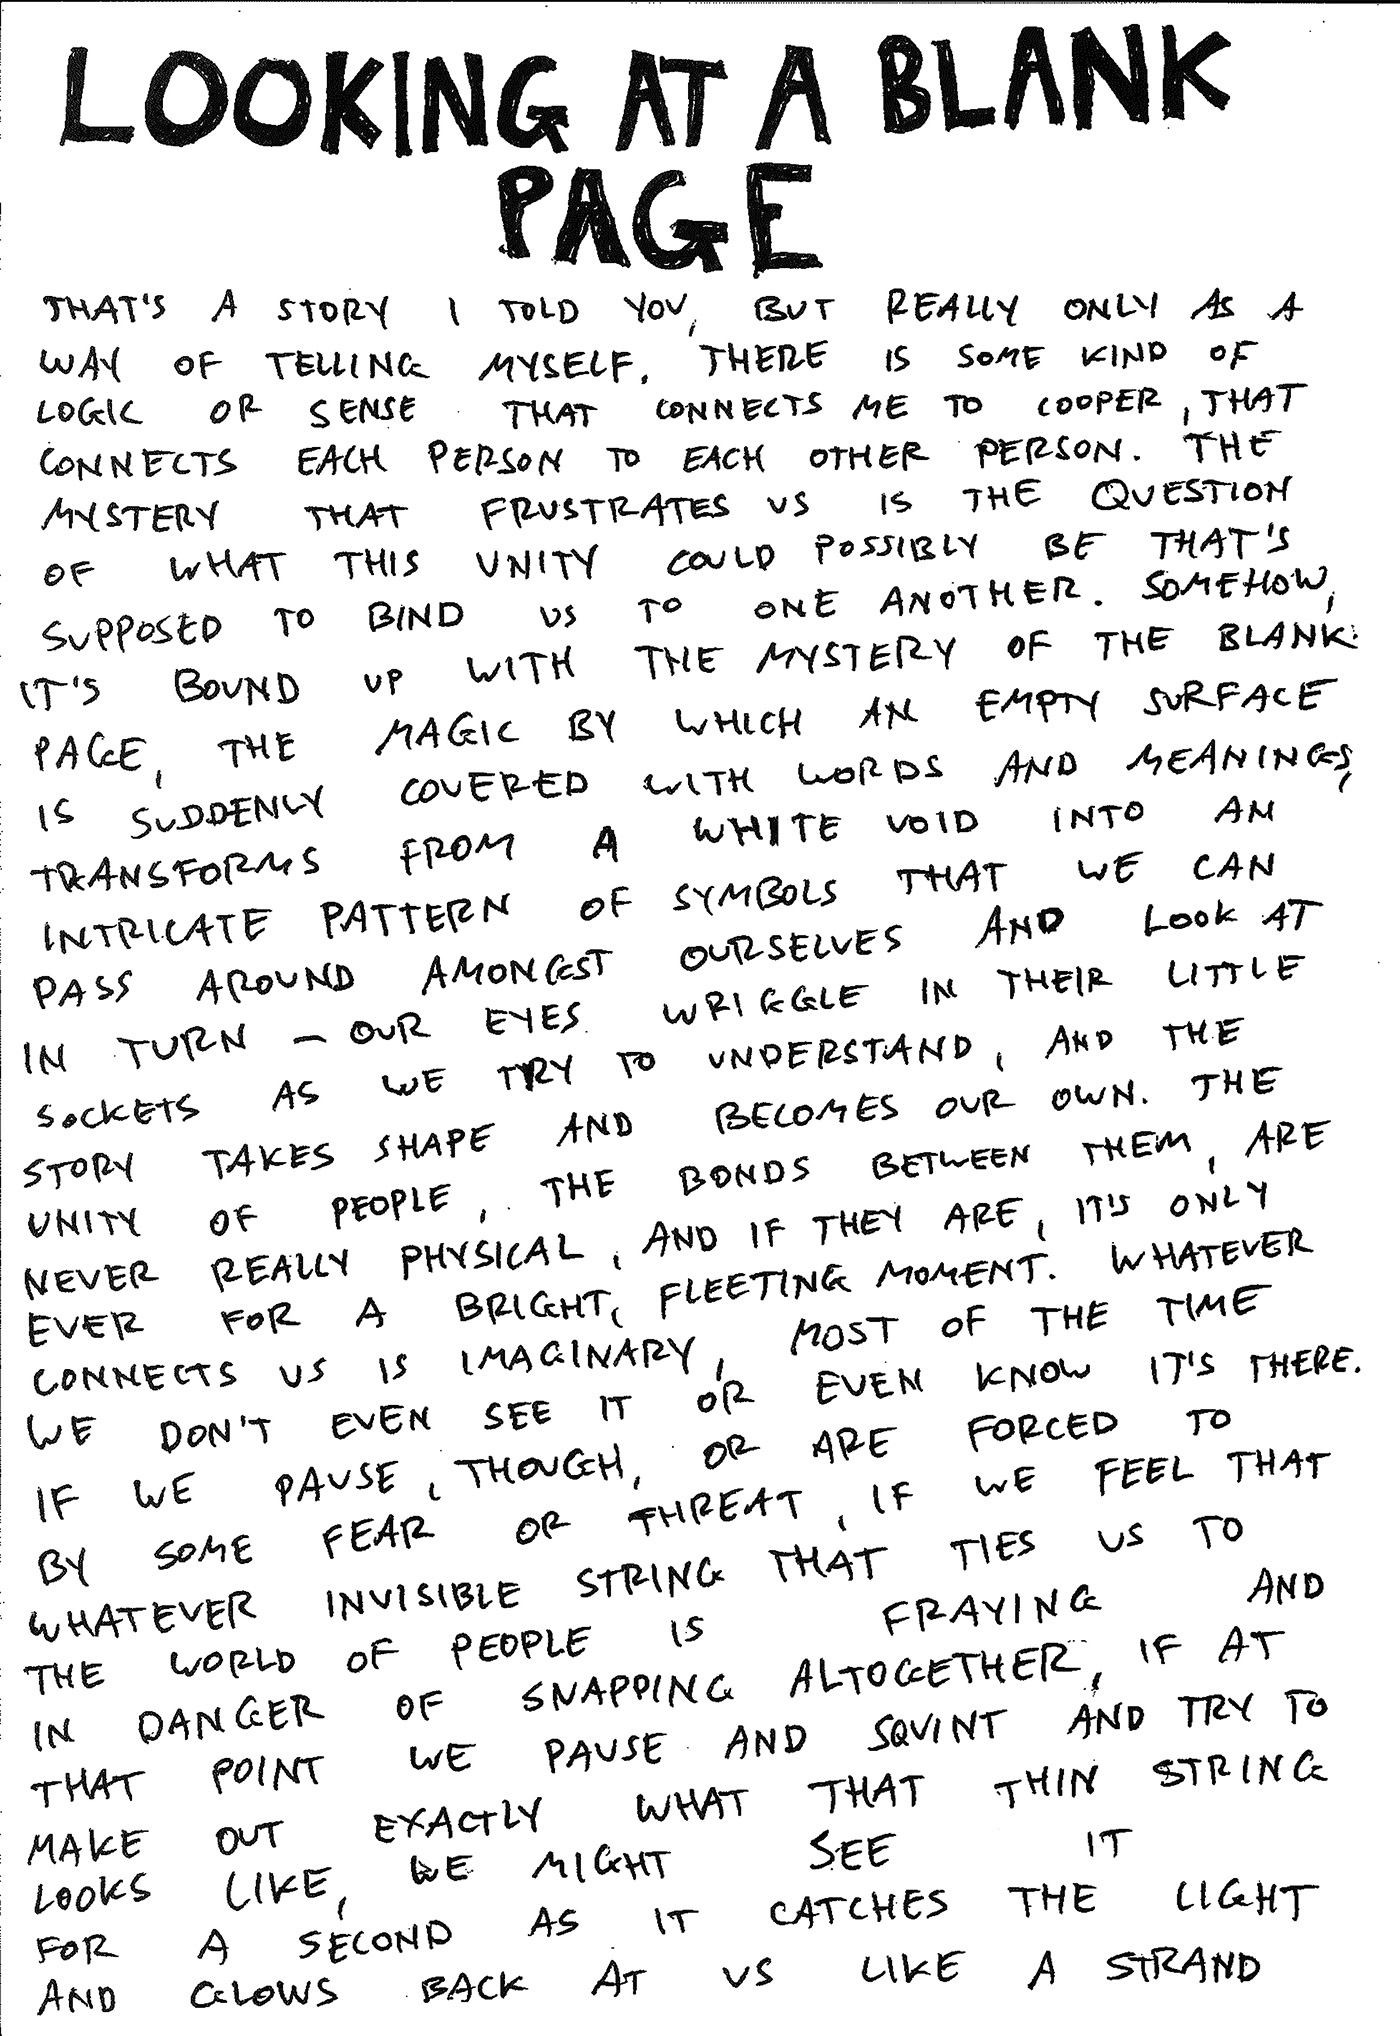 LOOKING AT A BLANK
PAGE
THAT'S A STORY I TOLD YOU, BUT REALLY ONLY AS A
WAY OF TELLING MYSELF. THERE IS SOME KIND OF
LOGIC OR SENSE THAT CONNECTS ME TO COOPER, THAT
CONNECTS EACH PERSON TO EACH OTHER PERSON. THE
MYSTERY THAT FRUSTRATES US IS THE QUESTION
OF WHAT THIS UNITY COULD POSSIBLY BE THAT'S
SUPPOSED TO BIND US TO ONE ANOTHER. SOMEHOW,
IT'S BOUND UP WITH THE MYSTERY OF THE BLANK
PAGE, THE MAGIC BY WHICH AN EMPTY SURFACE
IS SUDDENLY COVERED WITH WORDS AND MEANINGS,
TRANSFORMS FROM A WHITE VOID INTO AN
INTRICATE PATTERN OF SYMBOLS THAT WE CAN
PASS AROUND AMONGST OURSELVES AND LOOK AT
IN TURN – OUR EYES WRIGGLE IN THEIR LITTLE
SOCKETS AS WE TRY TO UNDERSTAND, AND THE
STORY TAKES SHAPE AND BECOMES OUR OWN. THE
UNITY OF PEOPLE, THE BONDS BETWEEN THEM, ARE
NEVER REALLY PHYSICAL, AND IF THEY ARE, IT'S ONLY
EVER FOR A BRIGHT, FLEETING MOMENT. WHATEVER
CONNECTS US IS IMAGINARY, MOST OF THE TIME
WE DON'T EVEN SEE IT OR EVEN KNOW IT'S THERE.
IF WE PAUSE, THOUGH, OR ARE FORCED TO
BY SOME FEAR OR THREAT, IF WE FEEL THAT
WHATEVER INVISIBLE STRING THAT TIES US TO
THE WORLD OF PEOPLE IS FRAYING AND
IN DANGER OF SNAPPING ALTOGETHER, IF AT
THAT POINT WE PAUSE AND SQUINT AND TRY TO
MAKE OUT EXACTLY WHAT THAT THIN STRING
LOOKS LIKE, WE MIGHT SEE IT
FOR A SECOND AS IT CATCHES THE LIGHT
AND GLOWS BACK AT US LIKE A STRAND